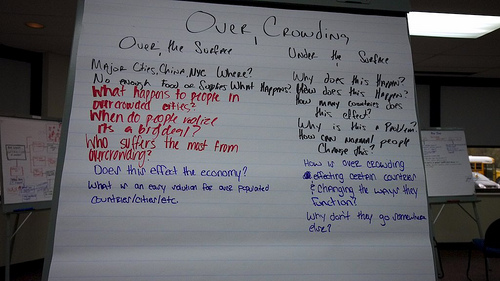 Over, Crowding
Over, the Surface
Major Cities, China, NYC Where?
No enough food or Supplies What Happens?
What happens to people in
overcrowded cities?
When do people notice
its a big deal?
Who suffers the most from
overcrowding?
Does this effect the economy?
What is an easy solution for over populated
countries/cities/etc.
Under the Surface
Why does this Happen?
How does this Happen?
How many countries does
this effect?
Why is this a Problem?
How can normal people
Change this?
How is over crowding
effecting certain countries
& Changing the ways they
function?
Why don't they go somewhere
else?